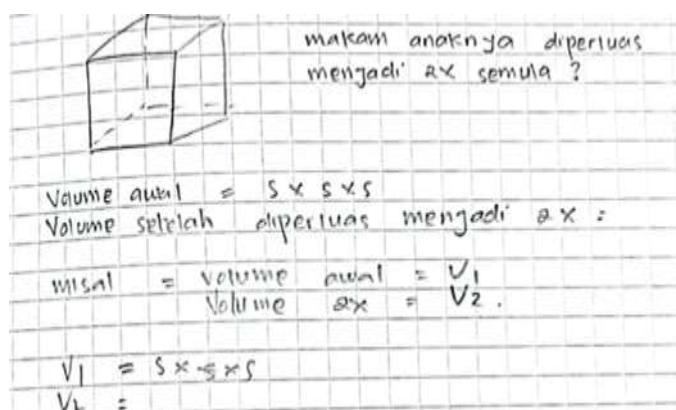 makam anaknya diperluas
menjadi 2x semula ?
Volume awal = s x s x s
Volume setelah diperluas menjadi 2x :
misal = volume awal = V1
Volume 2x = V2.
V1 = s x s x s
V2 =